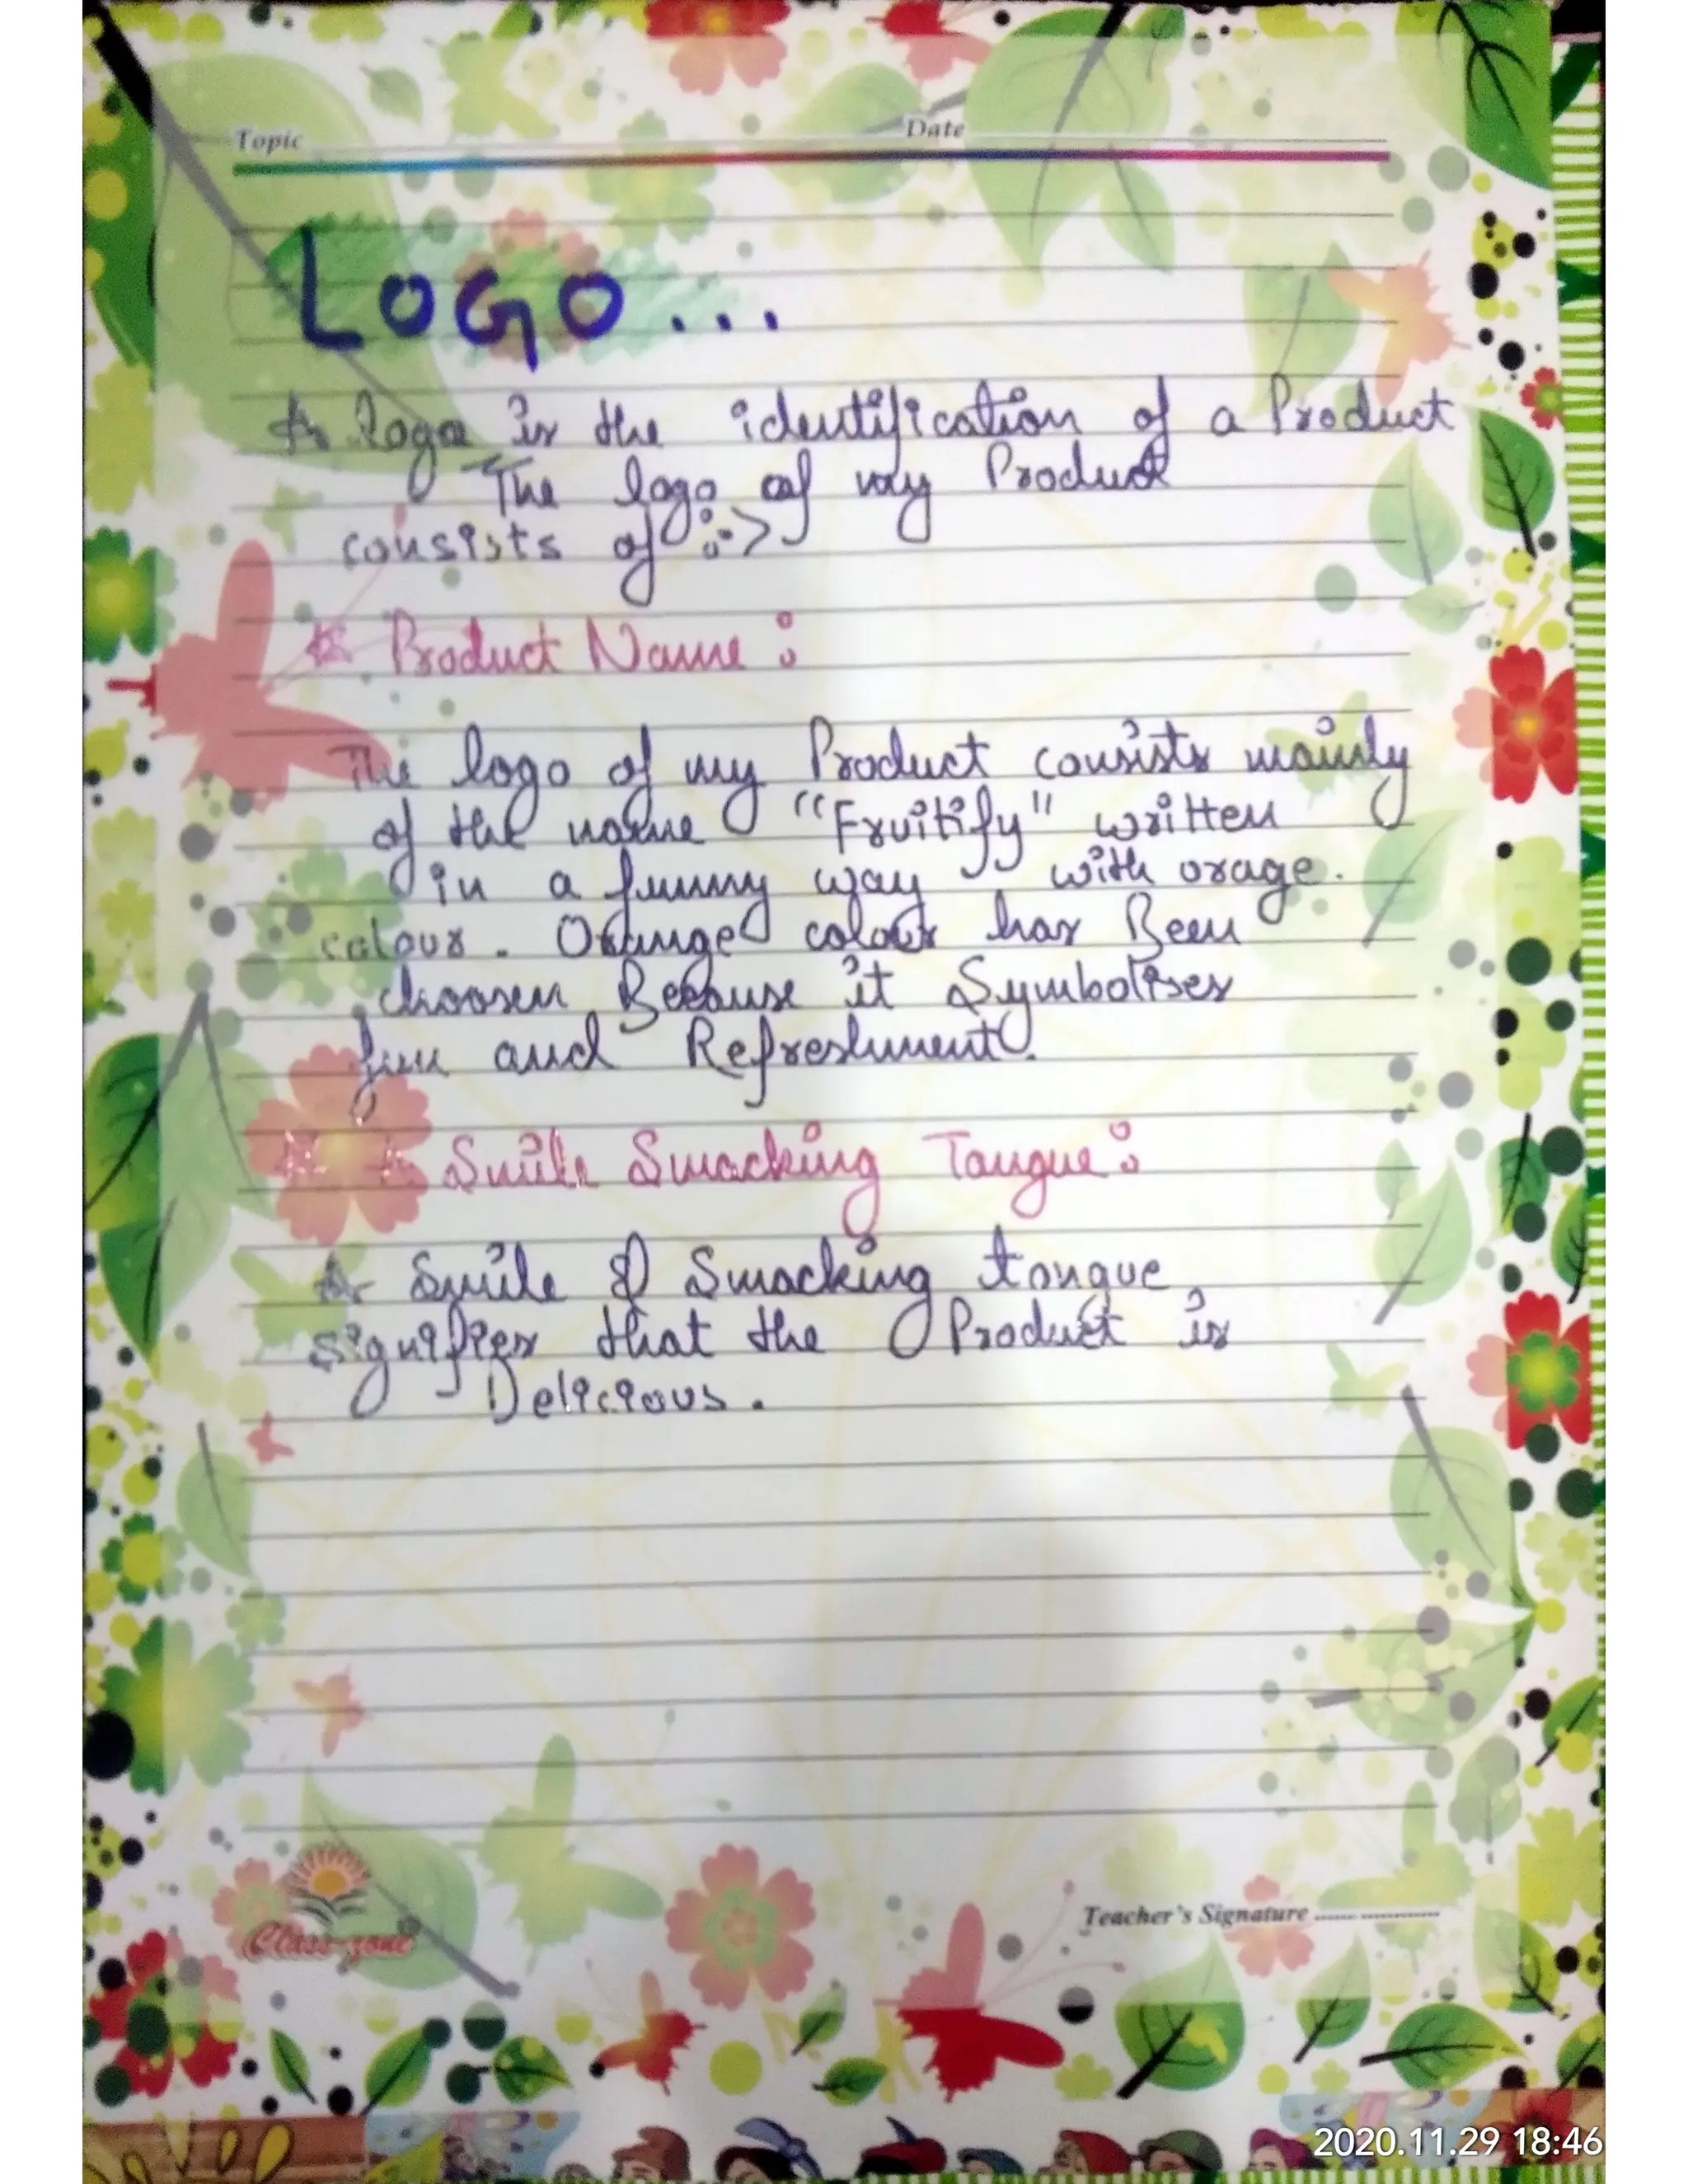 Topic Date
LOGO...
A logo is the identification of a Product
The logo of my Product
consists of :->
Product Name :
The logo of my Product consists mainly
of the name "Fruitify" written
in a funny way with orage.
colour. Orange colour has Been
choosen Because it Symbolises
fun and Refreshment.
A Smile Smacking Tongue :
A Smile & Smacking tongue
signifies that the Product is
Delicious.
Teacher's Signature ......................
Class zone
2020.11.29 18:46